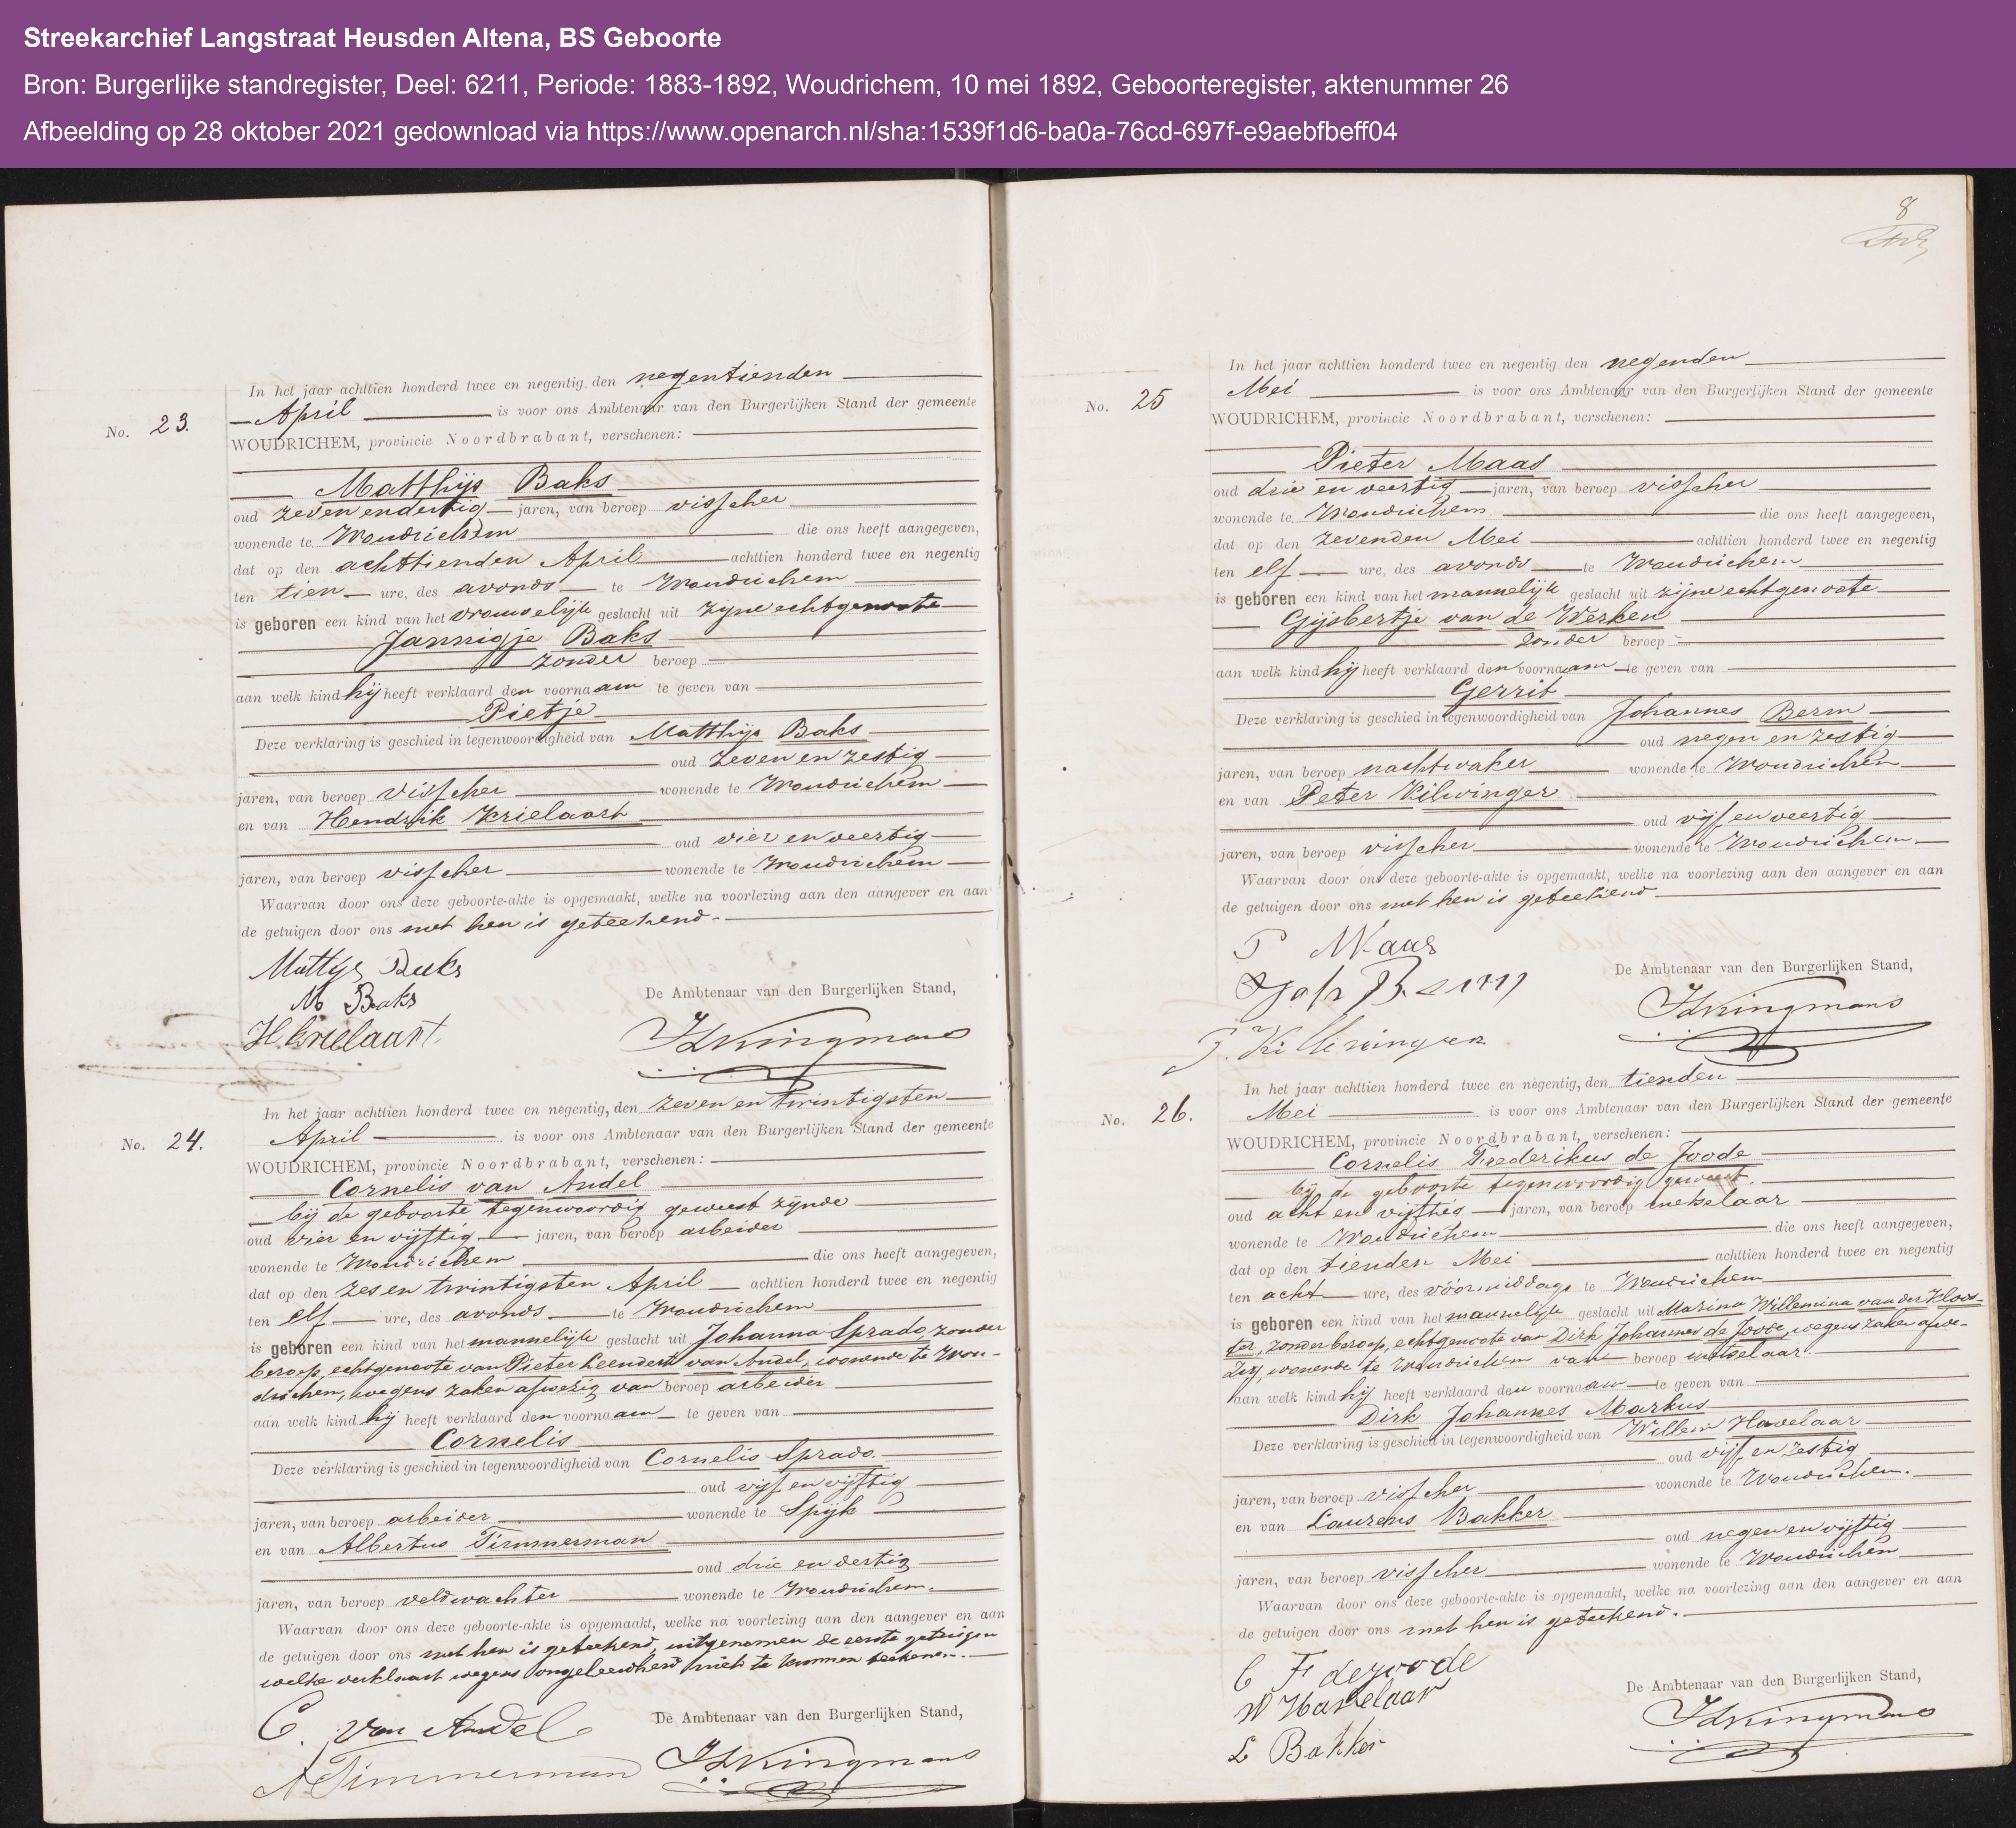 Streekarchief Langstraat Heusden Altena, BS Geboorte
Bron: Burgerlijke standregister, Deel: 6211, Periode: 1883-1892, Woudrichem, 10 mei 1892, Geboorteregister, aktenummer 26
Afbeelding op 28 oktober 2021 gedownload via https://www.openarch.nl/sha:1539f1d6-ba0a-76cd-697f-e9aebfbeff04
No. 23.
In het jaar achttien honderd twee en negentig den negentienden
April is voor ons Ambtenaar van den Burgerlijken Stand der gemeente
WOUDRICHEM, provincie Noordbrabant, verschenen:
Matthijs Baks
oud zeven en dertig jaren, van beroep visscher
wonende te Woudrichem die ons heeft aangegeven,
dat op den achttienden April achttien honderd twee en negentig
ten tien ure, des avonds te Woudrichem
is geboren een kind van het vrouwelijk geslacht uit zijne echtgenoote
Jannigje Baks
zonder beroep
aan welk kind hij heeft verklaard den voornaam te geven van
Pietje
Deze verklaring is geschied in tegenwoordigheid van Matthijs Baks
oud zeven en zestig
jaren, van beroep visscher wonende te Woudrichem
en van Hendrik Krielaart
oud vier en veertig
jaren, van beroep visscher wonende te Woudrichem
Waarvan door ons deze geboorte-akte is opgemaakt, welke na voorlezing aan den aangever en aan
de getuigen door ons met hen is geteekend.
Mattijs Baks
M Baks
H Krielaart
De Ambtenaar van den Burgerlijken Stand,
Kingmans
No. 24.
In het jaar achttien honderd twee en negentig, den zeven en twintigsten
April is voor ons Ambtenaar van den Burgerlijken Stand der gemeente
WOUDRICHEM, provincie Noordbrabant, verschenen:
Cornelis van Andel
bij de geboorte tegenwoordig geweest zijnde
oud vier en vijftig jaren, van beroep arbeider
wonende te Woudrichem die ons heeft aangegeven,
dat op den zes en twintigsten April achttien honderd twee en negentig
ten elf ure, des avonds te Woudrichem
is geboren een kind van het mannelijk geslacht uit Johanna Sprado, zonder
beroep, echtgenoote van Pieter Leendert van Andel, wonende te Wou-
drichem, wegens zaken afwezig van beroep arbeider
aan welk kind hij heeft verklaard den voornaam te geven van
Cornelis
Deze verklaring is geschied in tegenwoordigheid van Cornelis Sprado.
oud vijf en vijftig
jaren, van beroep arbeider wonende te Spijk
en van Albertus Timmerman
oud drie en dertig
jaren, van beroep veldwachter wonende te Woudrichem.
Waarvan door ons deze geboorte-akte is opgemaakt, welke na voorlezing aan den aangever en aan
de getuigen door ons met hen is geteekend, uitgenomen de eerste getuigen
welke verklaart wegens ongeleerdheid niet te kunnen teekenen.
C. van Andel
A Timmerman
De Ambtenaar van den Burgerlijken Stand,
Kingmans
8
No. 25
In het jaar achttien honderd twee en negentig den negenden
Mei is voor ons Ambtenaar van den Burgerlijken Stand der gemeente
WOUDRICHEM, provincie Noordbrabant, verschenen:
Pieter Maas
oud drie en veertig jaren, van beroep visscher
wonende te Woudrichem die ons heeft aangegeven,
dat op den zevenden Mei achttien honderd twee en negentig
ten elf ure, des avonds te Woudrichem
is geboren een kind van het mannelijk geslacht uit zijne echtgenoote
Gijsbertje van de Werken
zonder beroep
aan welk kind hij heeft verklaard den voornaam te geven van
Gerrit
Deze verklaring is geschied in tegenwoordigheid van Johannes Berm
oud negen en zestig
jaren, van beroep nachtwaker wonende te Woudrichem
en van Peter Kilwinger
oud vijf en veertig
jaren, van beroep visscher wonende te Woudrichem
Waarvan door ons deze geboorte-akte is opgemaakt, welke na voorlezing aan den aangever en aan
de getuigen door ons met hen is geteekend
P Maas
Joh Berm
P. Killewinger
De Ambtenaar van den Burgerlijken Stand,
Kingmans
No. 26.
In het jaar achttien honderd twee en negentig, den tienden
Mei is voor ons Ambtenaar van den Burgerlijken Stand der gemeente
WOUDRICHEM, provincie Noordbrabant, verschenen:
Cornelis Frederikus de Joode
bij de geboorte tegenwoordig geweest.
oud acht en vijftig jaren, van beroep metselaar
wonende te Woudrichem die ons heeft aangegeven,
dat op den tienden Mei achttien honderd twee en negentig
ten acht ure, des vóórmiddags te Woudrichem
is geboren een kind van het mannelijk geslacht uit Marina Willemina van der Kloos-
ter, zonder beroep, echtgenoote van Dirk Johannes de Joode, wegens zaken afwe-
zig, wonende te Woudrichem van beroep metselaar.
aan welk kind hij heeft verklaard den voornaam te geven van
Dirk Johannes Markus
Deze verklaring is geschied in tegenwoordigheid van Willem Havelaar
oud vijf en zestig
jaren, van beroep visscher wonende te Woudrichem.
en van Laurens Bakker
oud negen en vijftig
jaren, van beroep visscher wonende te Woudrichem
Waarvan door ons deze geboorte-akte is opgemaakt, welke na voorlezing aan den aangever en aan
de getuigen door ons met hen is geteekend.
C F de joode
W Havelaar
L Bakker
De Ambtenaar van den Burgerlijken Stand,
Kingmans